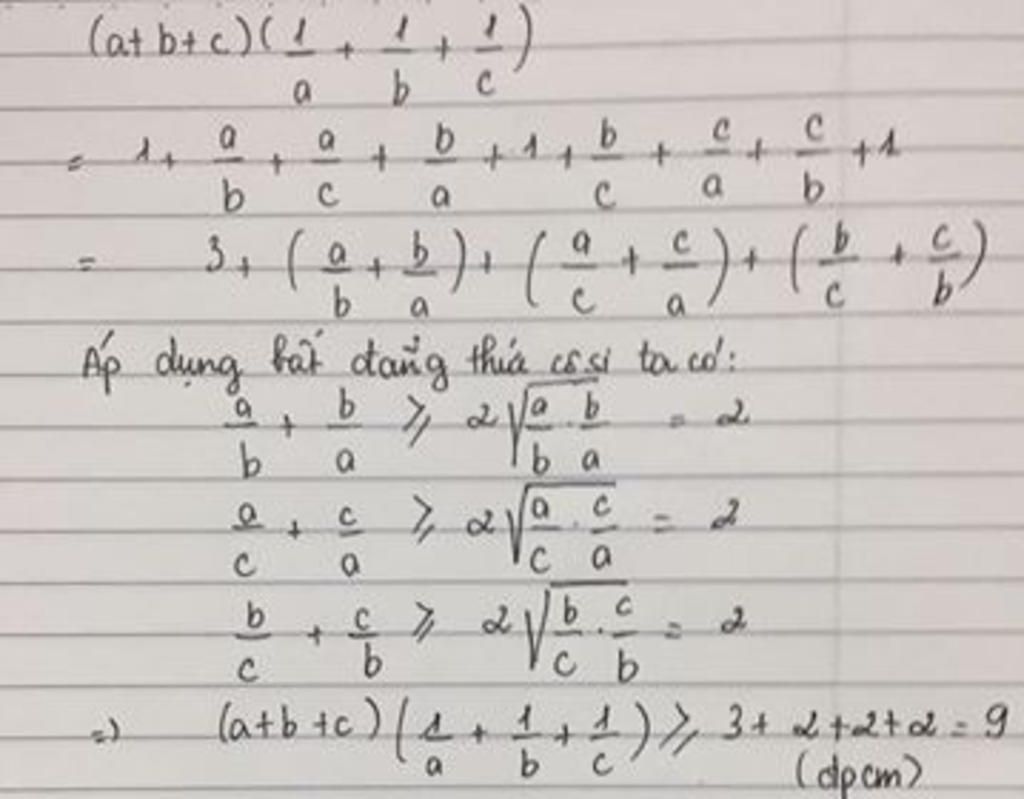 (a+b+c)(1/a + 1/b + 1/c)
= 1 + a/b + a/c + b/a + 1 + b/c + c/a + c/b + 1
= 3 + (a/b + b/a) + (a/c + c/a) + (b/c + c/b)
Áp dụng bất đẳng thức cô si ta có:
a/b + b/a ⩾ 2√(a/b · b/a) = 2
a/c + c/a ⩾ 2√(a/c · c/a) = 2
b/c + c/b ⩾ 2√(b/c · c/b) = 2
=) (a+b+c)(1/a + 1/b + 1/c) ⩾ 3+ 2+2+2 = 9
(dpcm)